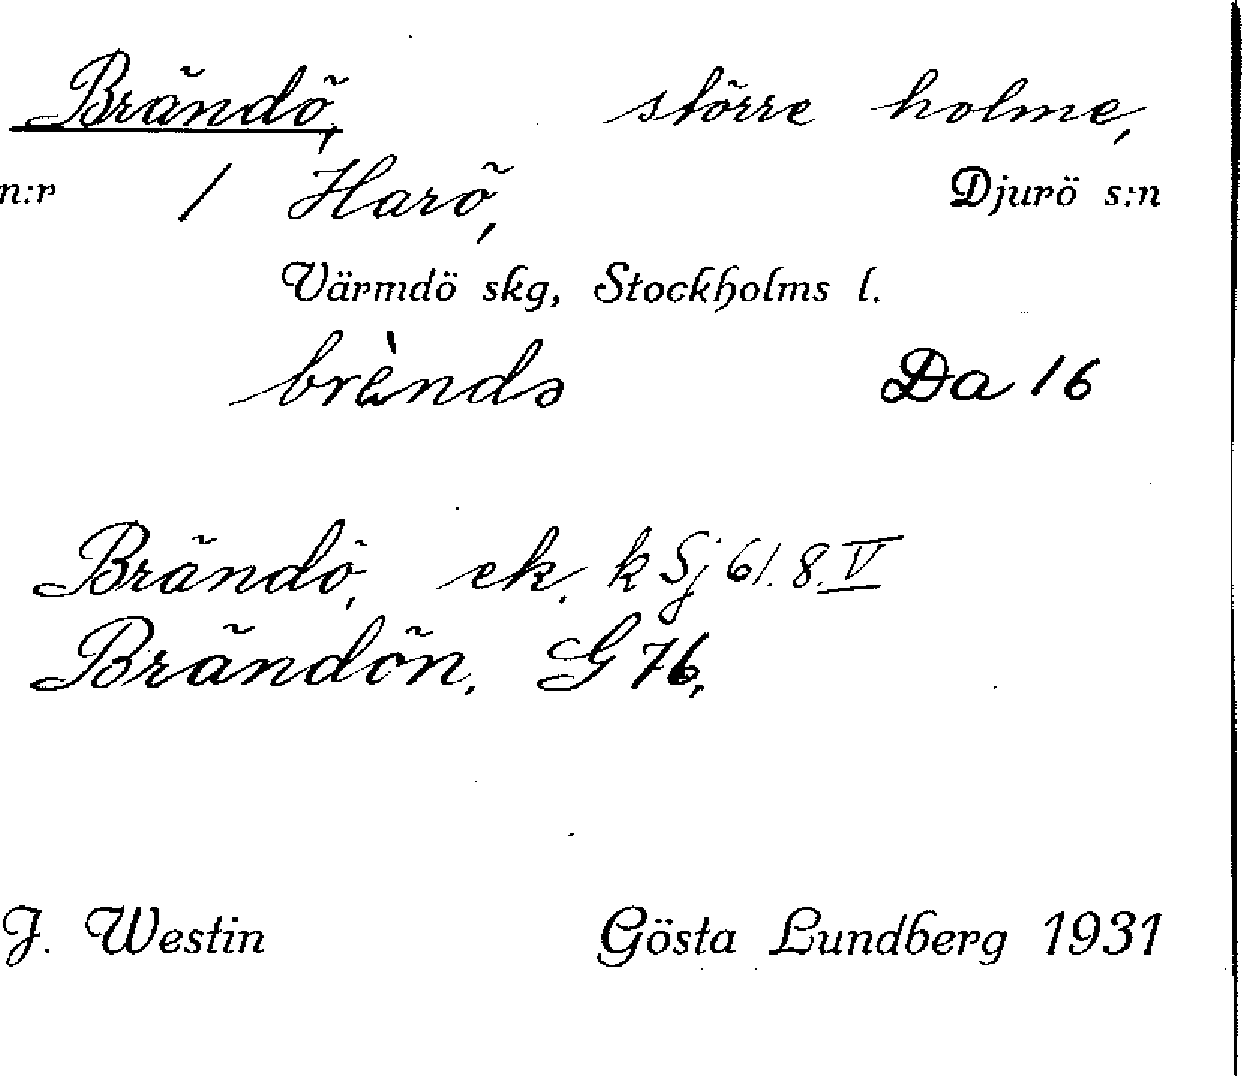 Brändö, större holme,
n:r 1 Harö, Djurö s:n
Värmdö skg, Stockholms l.
brèndə Da 16
Brändö, ek. k Sj 61.8.V
Brändön. G 76,
J. Westin Gösta Lundberg 1931